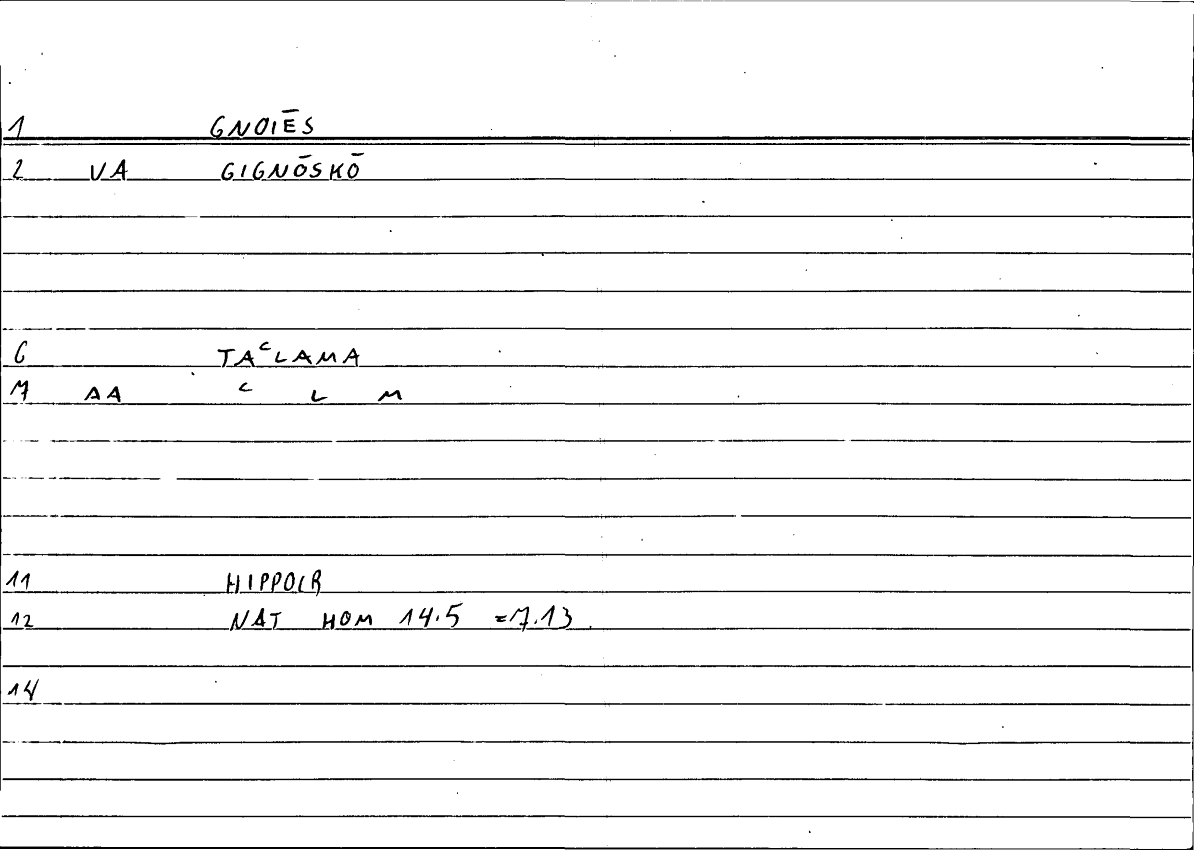 1 GNOIĒS
2 VA GIGNŌSKŌ
6 TAᶜLAMA
7 AA ᶜ L M
11 HIPPOCR
12 NAT HOM 14.5 =7.13
14